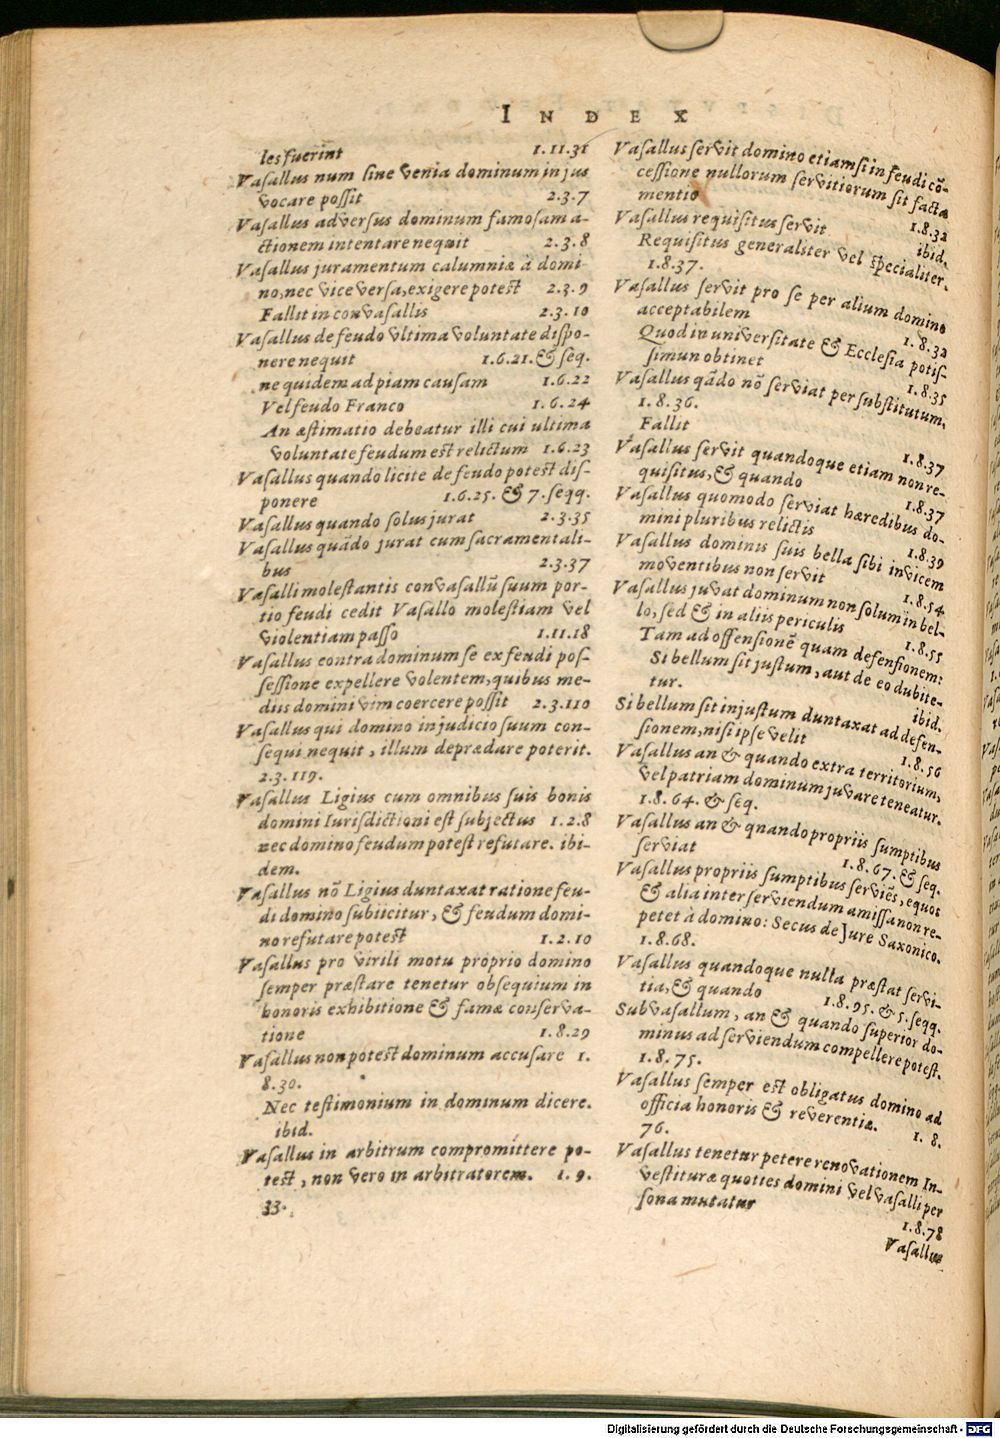 INDEX
les fuerint 1.11.31
Vasallus num sine venia dominum in jus
vocare possit 2.3.7
Vasallus adversus dominum famosam a-
ctionem intentare nequit 2.3.8
Vasallus juramentum calumniæ à domi-
no, nec vice versa, exigere potest 2.3.9
Fallit in convasallis 2.3.10
Vasallus de feudo ultima voluntate dispo-
nere nequit 1.6.21. & seq.
ne quidem ad piam causam 1.6.22
Vel feudo Franco 1.6.24
An æstimatio debeatur illi cui ultima
voluntate feudum est relictum 1.6.23
Vasallus quando licite de feudo potest dis-
ponere 1.6.25. & 7. seqq.
Vasallus quando solus jurat 2.3.35
Vasallus quādo jurat cum sacramentali-
bus 2.3.37
Vasalli molestantis convasallū suum por-
tio feudi cedit Vasallo molestiam vel
violentiam passo 1.11.18
Vasallus contra dominum se ex feudi pos-
sessione expellere volentem, quibus me-
diis domini vim coercere possit 2.3.110
Vasallus qui domino in judicio suum con-
sequi nequit, illum deprædare poterit.
2.3.119.
Vasallus Ligius cum omnibus suis bonis
domini Iurisdictioni est subjectus 1.2.8
nec domino feudum potest refutare. ibi-
dem.
Vasallus nō Ligius duntaxat ratione feu-
di domino subiicitur, & feudum domi-
no refutare potest 1.2.10
Vasallus pro virili motu proprio domino
semper præstare tenetur obsequium in
honoris exhibitione & famæ conserva-
tione 1.8.29
Vasallus non potest dominum accusare 1.
8.30.
Nec testimonium in dominum dicere.
ibid.
Vasallus in arbitrum compromittere po-
test, non vero in arbitratorem. 1.9.
33.
Vasallus servit domino etiamsi in feudi cō-
cessione nullorum servitiorum sit facta
mentio 1.8.32
Vasallus requisitus servit ibid.
Requisitus generaliter vel specialiter.
1.8.37.
Vasallus servit pro se per alium domino
acceptabilem 1.8.32
Quod in universitate & Ecclesia potis-
simun obtinet 1.8.35
Vasallus qādo nō serviat per substitutum.
1.8.36.
Fallit 1.8.37
Vasallus servit quandoque etiam non re-
quisitus, & quando 1.8.37
Vasallus quomodo serviat hæredibus do-
mini pluribus relictis 1.8.39
Vasallus dominis suis bella sibi invicem
moventibus non servit 1.8.54
Vasallus juvat dominum non solum in bel-
lo, sed & in aliis periculis 1.8.55
Tam ad offensionē quam defensionem:
Si bellum sit justum, aut de eo dubite-
tur. ibid.
Si bellum sit injustum duntaxat ad defen-
sionem, nisi ipse velit 1.8.56
Vasallus an & quando extra territorium,
vel patriam dominum juvare teneatur.
1.8.64. & seq.
Vasallus an & qnando propriis sumptibus
serviat 1.8.67. & seq.
Vasallus propriis sumptibus serviēs, equos
& alia inter serviendum amissa non re-
petet à domino: Secus de Jure Saxonico.
1.8.68.
Vasallus quandoque nulla præstat servi-
tia, & quando 1.8.95. & 5. seqq.
Subvasallum, an & quando superior do-
minus ad serviendum compellere potest.
1.8.75.
Vasallus semper est obligatus domino ad
officia honoris & reverentiæ. 1.8.
76.
Vasallus tenetur petere renovationem In-
vestituræ quoties domini vel vasalli per
sona mutatur 1.8.78
Vasallus
Digitalisierung gefördert durch die Deutsche Forschungsgemeinschaft - DFG